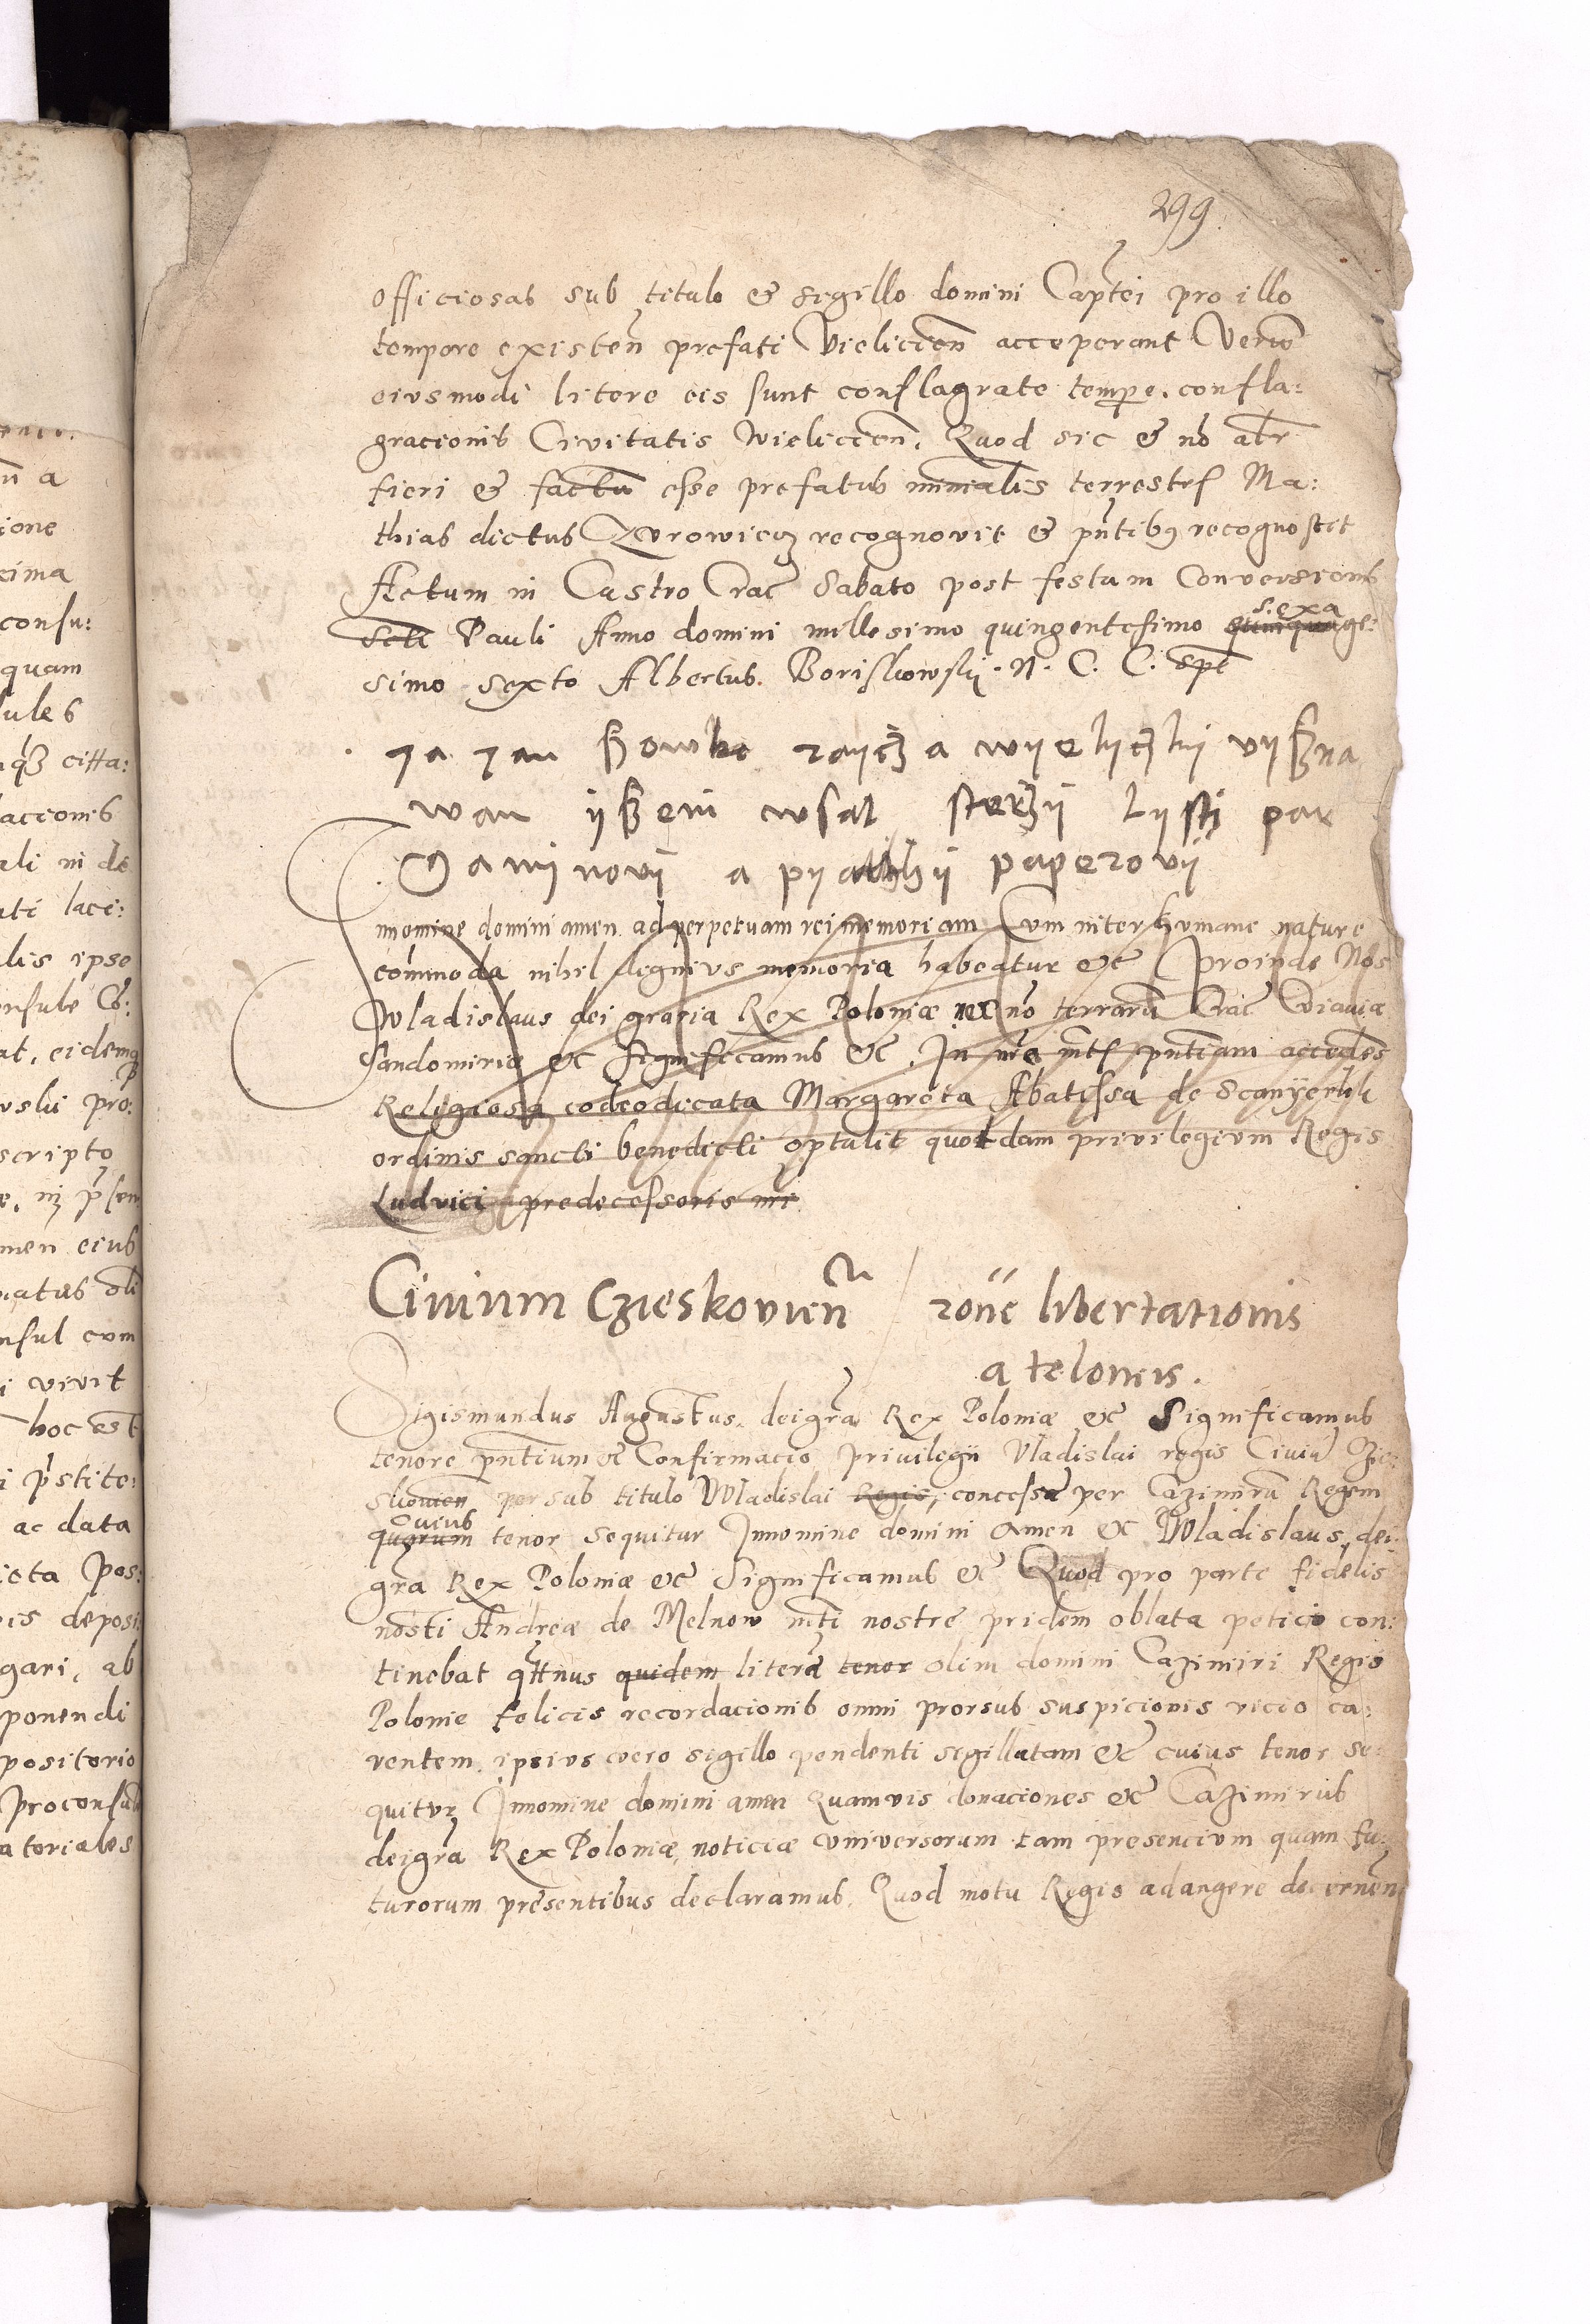 299
officiosas sub titulo & sigillo domini Capt̃ei pro illo
tempore existeñ prefati Vieliccen̄ acceperant Verũ
eiusmodi litere eis sunt conflagrate tempe. confla:
gracionis Civitatis Wieliccen̄. Quod sic & nō alr̃
fieri & factũ esse prefatus mīnialis terrestrſ Ma:
thias dictus Zurowicz recognovit & pñtibꝫ recognoscit
Actum in Castro Crac̄ Sabato post festum Conversionis
scti Pauli Anno domini millesimo quingentesimo quinquage:
sexa
simo sexto Albertus. Boriskowskij. N. C. C. spt̄
ja jan ßowka raycza wyelyczky vyßna
wan yßem wsal sterzy Lysty par
gaminovy a pyathy paperovy
Innomine domini amen ad perpetuam rei memoriam Cum inter humane nature
cōmmoda nihil dignius memoria habeatur &c̄ Proinde Nos
Wladislaus dei gracia Rex Poloniæ nec nō terrarũ Crac̄ Cuiavia
Sandomiriæ &c Significamus &c̄. In nr̄a mtſ pñtiam accedēs
Religiosa codeodicata Margareta Abatissa de Scanyerky
ordinis sancti benedicti optulit quoddam privilegium Regis
Ludvici predecessoris nr̄i
Civium Czieskovień / roñe libertationis
a teloneis.
Sigismundus Augustus. deigrã Rex Poloniæ &c̄ Significamus
tenore pñtium &c̄ Confirmacio privilegii Vladislai regis Civiũ Czie:
skovien per sub titulo Wladislai Regis, concessũ per Cazimirũ Regem
cuius
quarum tenor sequitur Innomine domini Amen &c Wladislaus dei
grã Rex Poloniæ &c̄ Significamus &c̄ Quod pro parte fidelis
nosti Andreæ de Melnow mti nostre pridem oblata peticio con:
tinebat qttnus quidem literã tenor olim domini Cazimiri Regis
Polonie felicis recordacionis omni prorsus suspicionis vicio ca:
rentem, ipsius vero sigillo pendenti sigillatam &c̄ cuius tenor se:
quitur Innomine domini amen Quamvis donaciones &c̄ Cazimirus
deigrã Rex Poloniæ, noticiæ universorum tam presencium quam fu:
turorum presentibus declaramus. Quod motu Regio adangere decernen̄